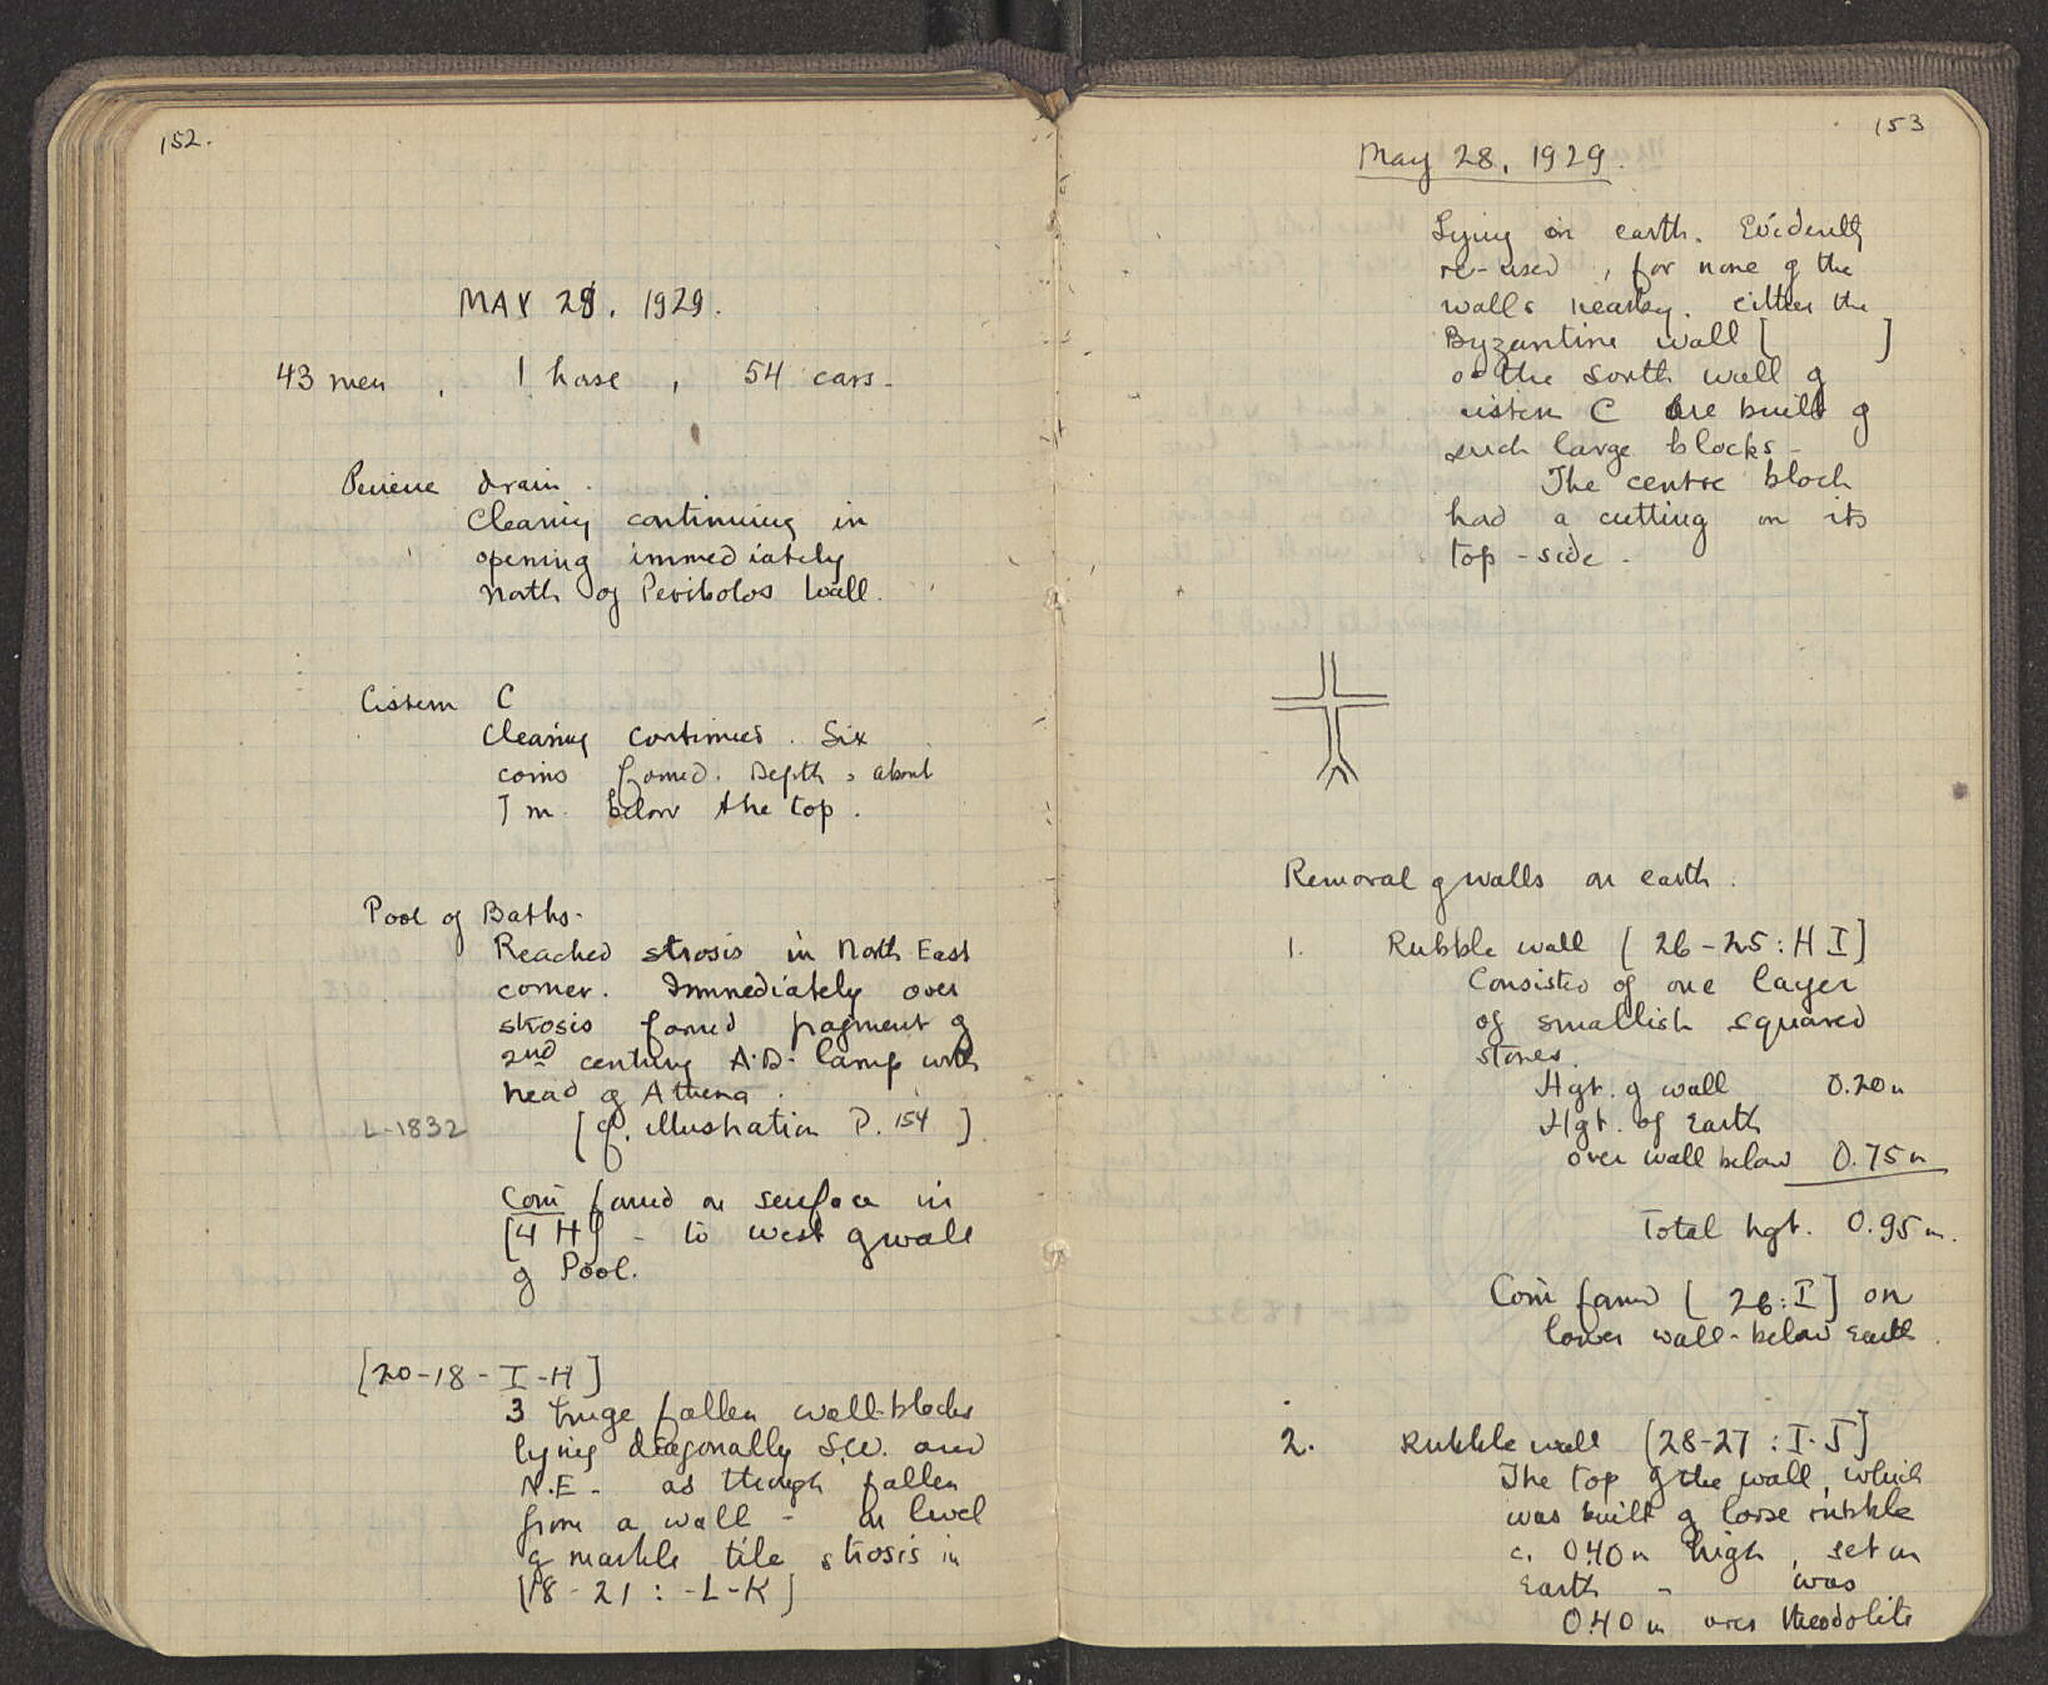 152.
MAY 28, 1929.
43 men , 1 horse , 54 cars.
Peirene drain.
Cleaning continuing in
opening immediately
north of Peribolos Wall.
Cistern C
Cleaning continued. Six
coins found. Depth, about
7 m. below the top.
Pool of Baths.
Reached strosis in North East
corner. Immediately over
strosis found fragment of
2nd century A.D. lamp with
head of Athena.
L-1832 [cf. illustration P. 154]
Coin found on surface in
[4 H] - to west of wall
of Pool.
[20-18 - I-H]
3 huge fallen wall-blocks
lying diagonally S.W. and
N.E. - as though fallen
from a wall - on level
of marble tile strosis in
[18-21 : -L-K]
153
May 28, 1929.
Lying on earth. Evidently
re-used, for none of the
walls nearby. either the
Byzantine wall [ ]
or the south wall of
cistern C are built of
such large blocks-
The centre block
had a cutting on its
top-side.
Removal of walls on earth.
1. Rubble wall [26-25 : H I]
Consisted of one layer
of smallish squared
stones.
Hgt. of wall 0.20m
Hgt. of Earth
over wall below 0.75m
Total hgt. 0.95m.
Coin found [26:I] on
lower wall-below Earth.
2. Rubble wall [28-27 : I-J]
The top of the wall, which
was built of loose rubble
c. 0.40m high, set in
Earth - was
0.40m over theodolite